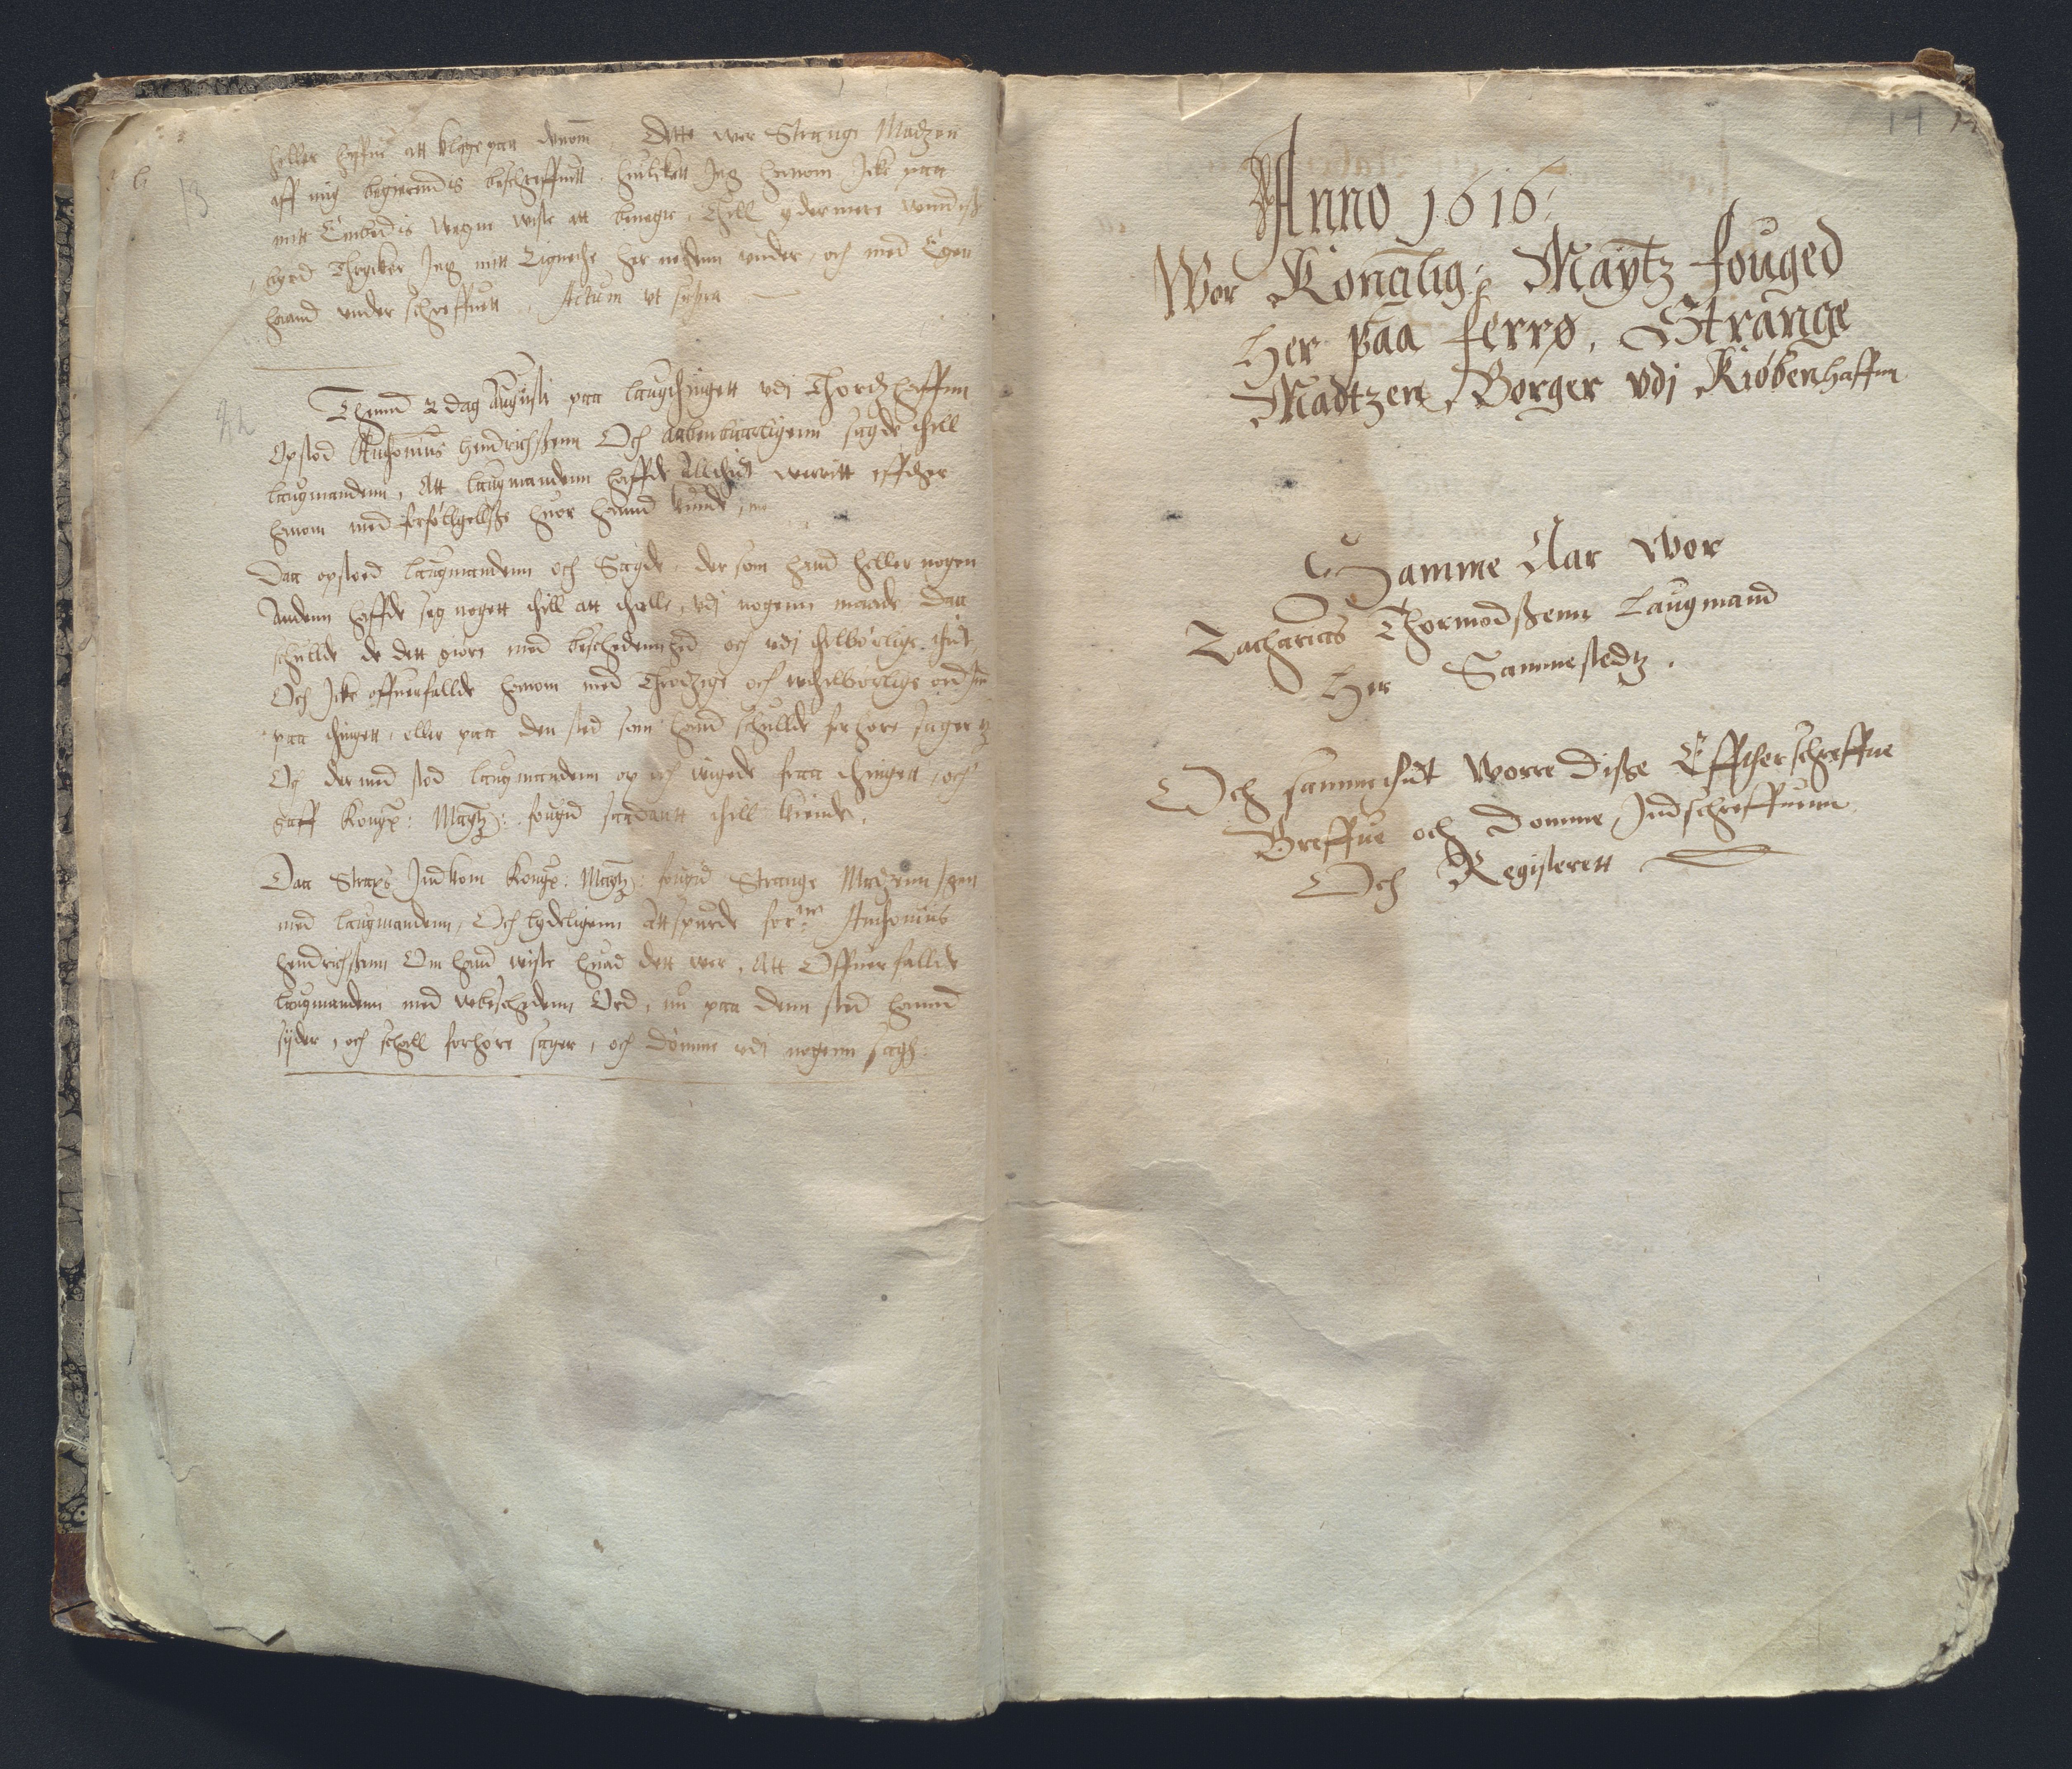 b
13
heller haffue att klage paa denom, Dette wor Strange Madzen
aff mig begierendis beschreffuett, huilckett Jeg hanom Icke paa
mitt Embedis wegne wiste att benegte, Thill ydermere windis
byrd Thrycker Jeg mitt Zignethe her neden under, och med Egen
haand under schreffuett, Actum ut supra
Thend 2 dag Augusti paa laugthingett udj Thorshaffnn
Opstod Anthonius Hendrichssenn Och aabenbarligenn sagde thill
laugmandenn, Att laugmandenn haffde Alltid werritt effther
hanom med forføllgellsse huor hannd kunde,
Daa opstoed laugmandenn och Sagde, der som hand heller nogen
Andenn haffde seg nogett thill att thalle, udj nogenn maade Daa
schullde de dett giøre med beschedennhed, och udj thilbørlige thid,
Och Icke offuerfallde hanom med Throdzige och uthilbørlige ord
paa thingett, eller paa den sted som hand schullde forhøre sager
Og dermed stod laugmandenn op och wigede fraa thingett, och
gaff Kong: Maytz: fougd saadantt thill kiende.
Daa Straxs Indkom Kong: Maytz: fougd Strange Madzenn Igen
med laugmandenn, Och lydeligenn Attspurde for:ne Anthonius
Hendrichssenn Om hand wiste huad dett wor, Att Offuerfallde
laugmandenn med ubeschedenn Ord, nu paa denn sted hannd
sider, och schall forhøre sager, och dømme udj nogenn sagh:
14
Anno 1616:
Wor Konglig: Maytz fouged
Her paa ferrø, Strange
Madtzen Borger vdj Kiøbenhaffnn
Samme Aar Wor
Zacharias Thormodssenn Laugmand
Her Sammestedtz.
Och samme thidt Worre Disse Effther schreffne
Breffue och Domme Indschreffuenn
Och Registerett